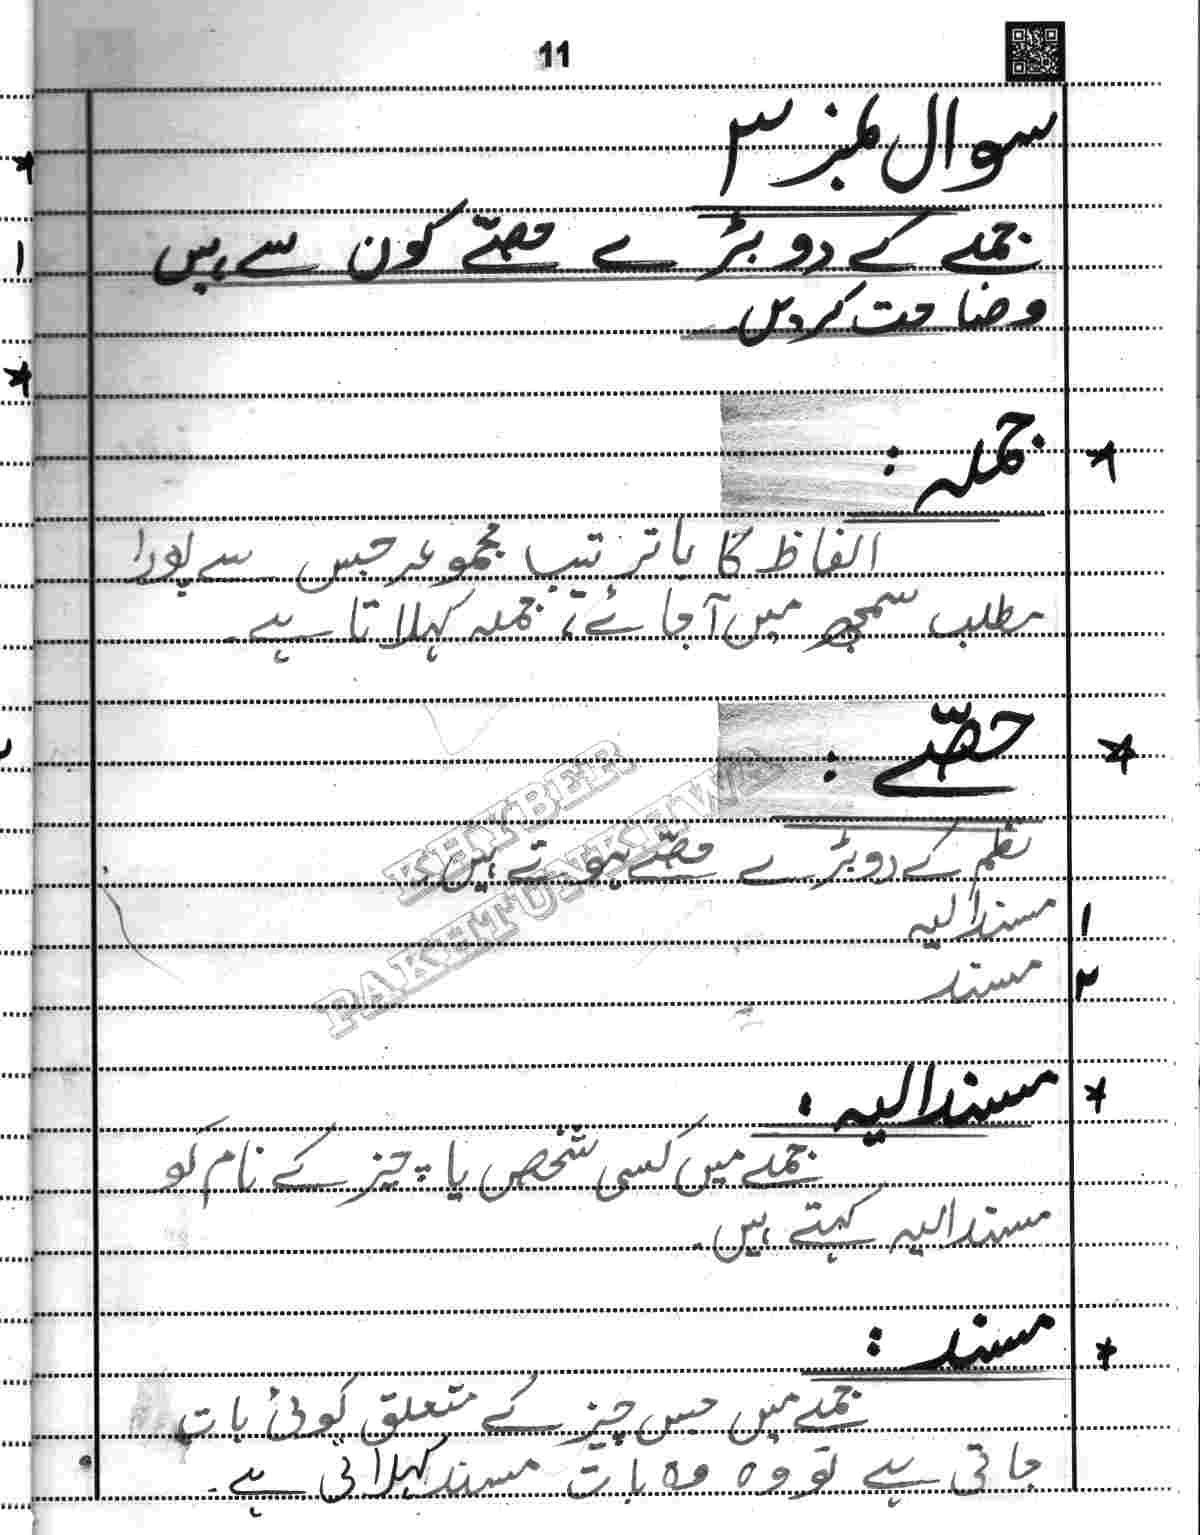 11
سوال نمبر ۳
جملے کے دو بڑے حصّے کون سے ہیں
وضاحت کردیں۔
* جملہ :
الفاظ کا باترتیب مجموعہ جس سے پورا
مطلب سمجھ میں آجائے، جملہ کہلاتا ہے۔
* حصّے :
نظم کے دو بڑے حصّے ہوتے ہیں۔
۱ مسندالیہ
۲ مسند
* مسندالیہ :
جملے میں کسی شخص یا چیز کے نام کو
مسندالیہ کہتے ہیں۔
* مسند :
جملے میں جس چیز کے متعلق کوئی بات
جاتی ہے تو وہ وہ بات مسند کہلاتی ہے۔
KHYBER
PAKHTUNKHWA